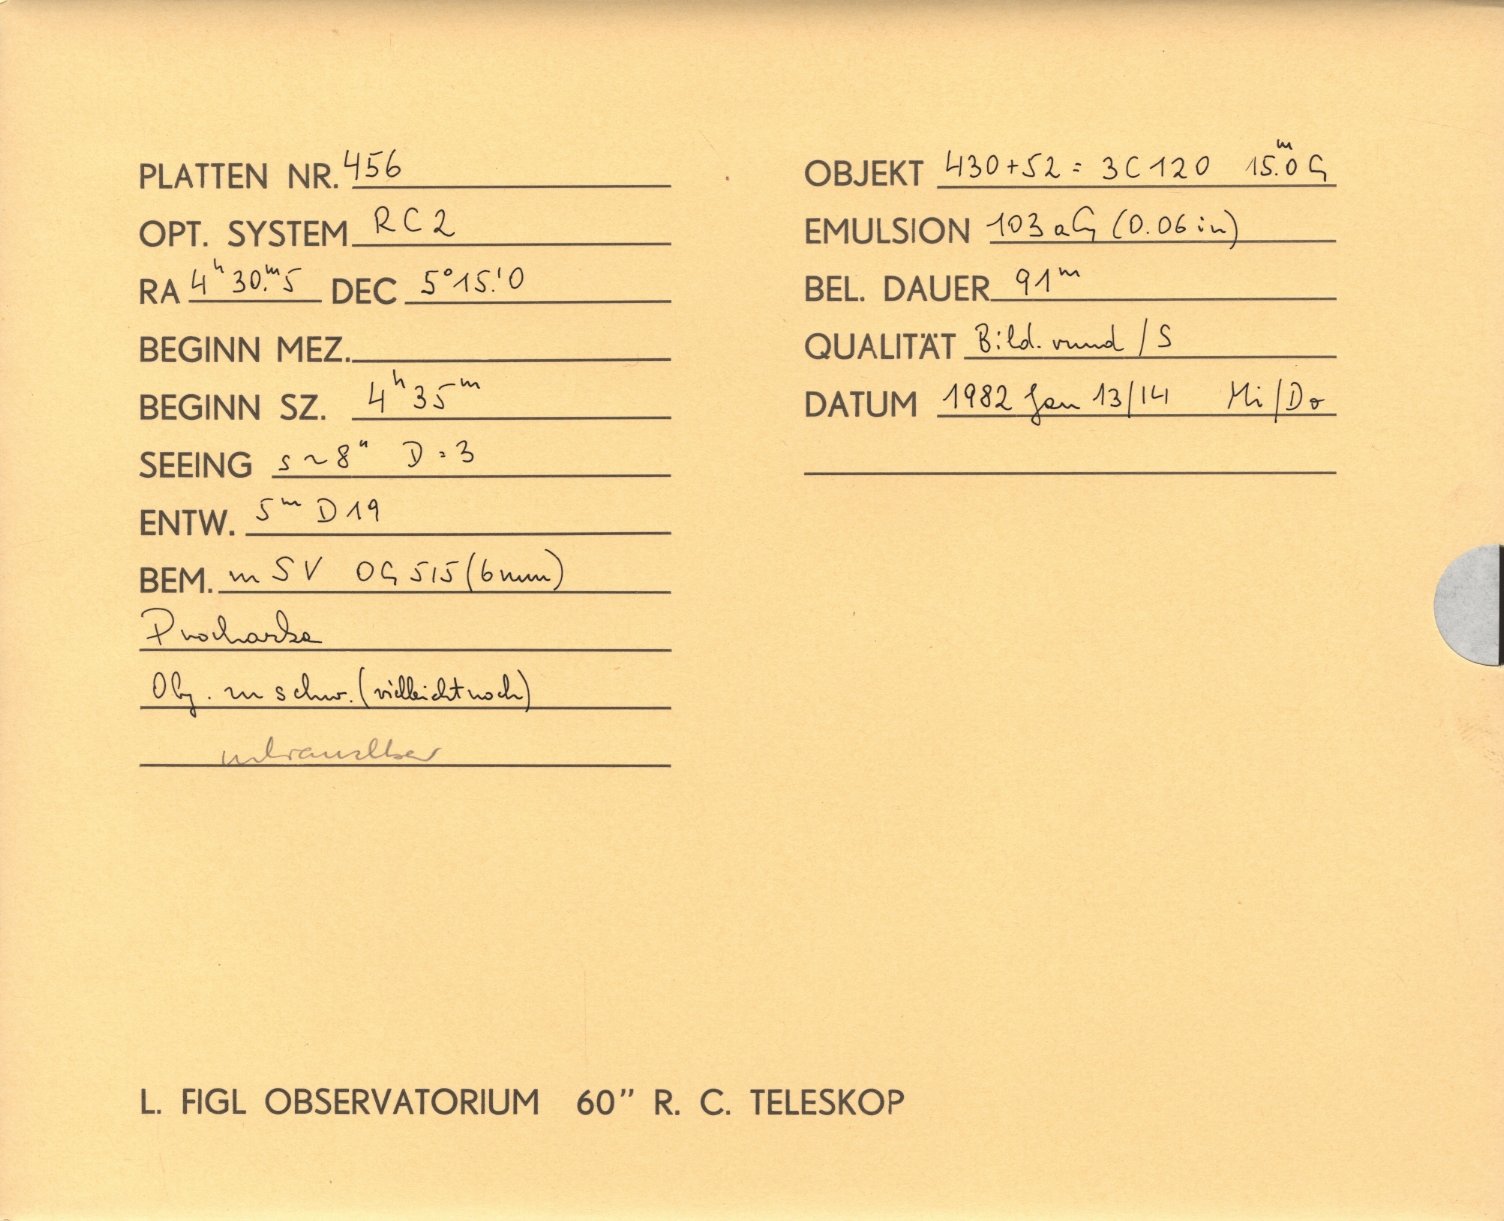 PLATTEN NR. 456
OPT. SYSTEM RC2
RA 4h 30.m5 DEC 5°15.'0
BEGINN MEZ.
BEGINN SZ. 4h 35m
SEEING s ~ 8" D = 3
ENTW. 5m D19
BEM. m SV OG 515 (6mm)
Procharka
Obj. m schw. (vielleicht noch)
OBJEKT 430+52 = 3C120 15.m0 G
EMULSION 103aG (0.06 in)
BEL. DAUER 91m
QUALITÄT Bild. rund / S
DATUM 1982 Jan 13/14 Mi/Do
L. FIGL OBSERVATORIUM 60" R. C. TELESKOP